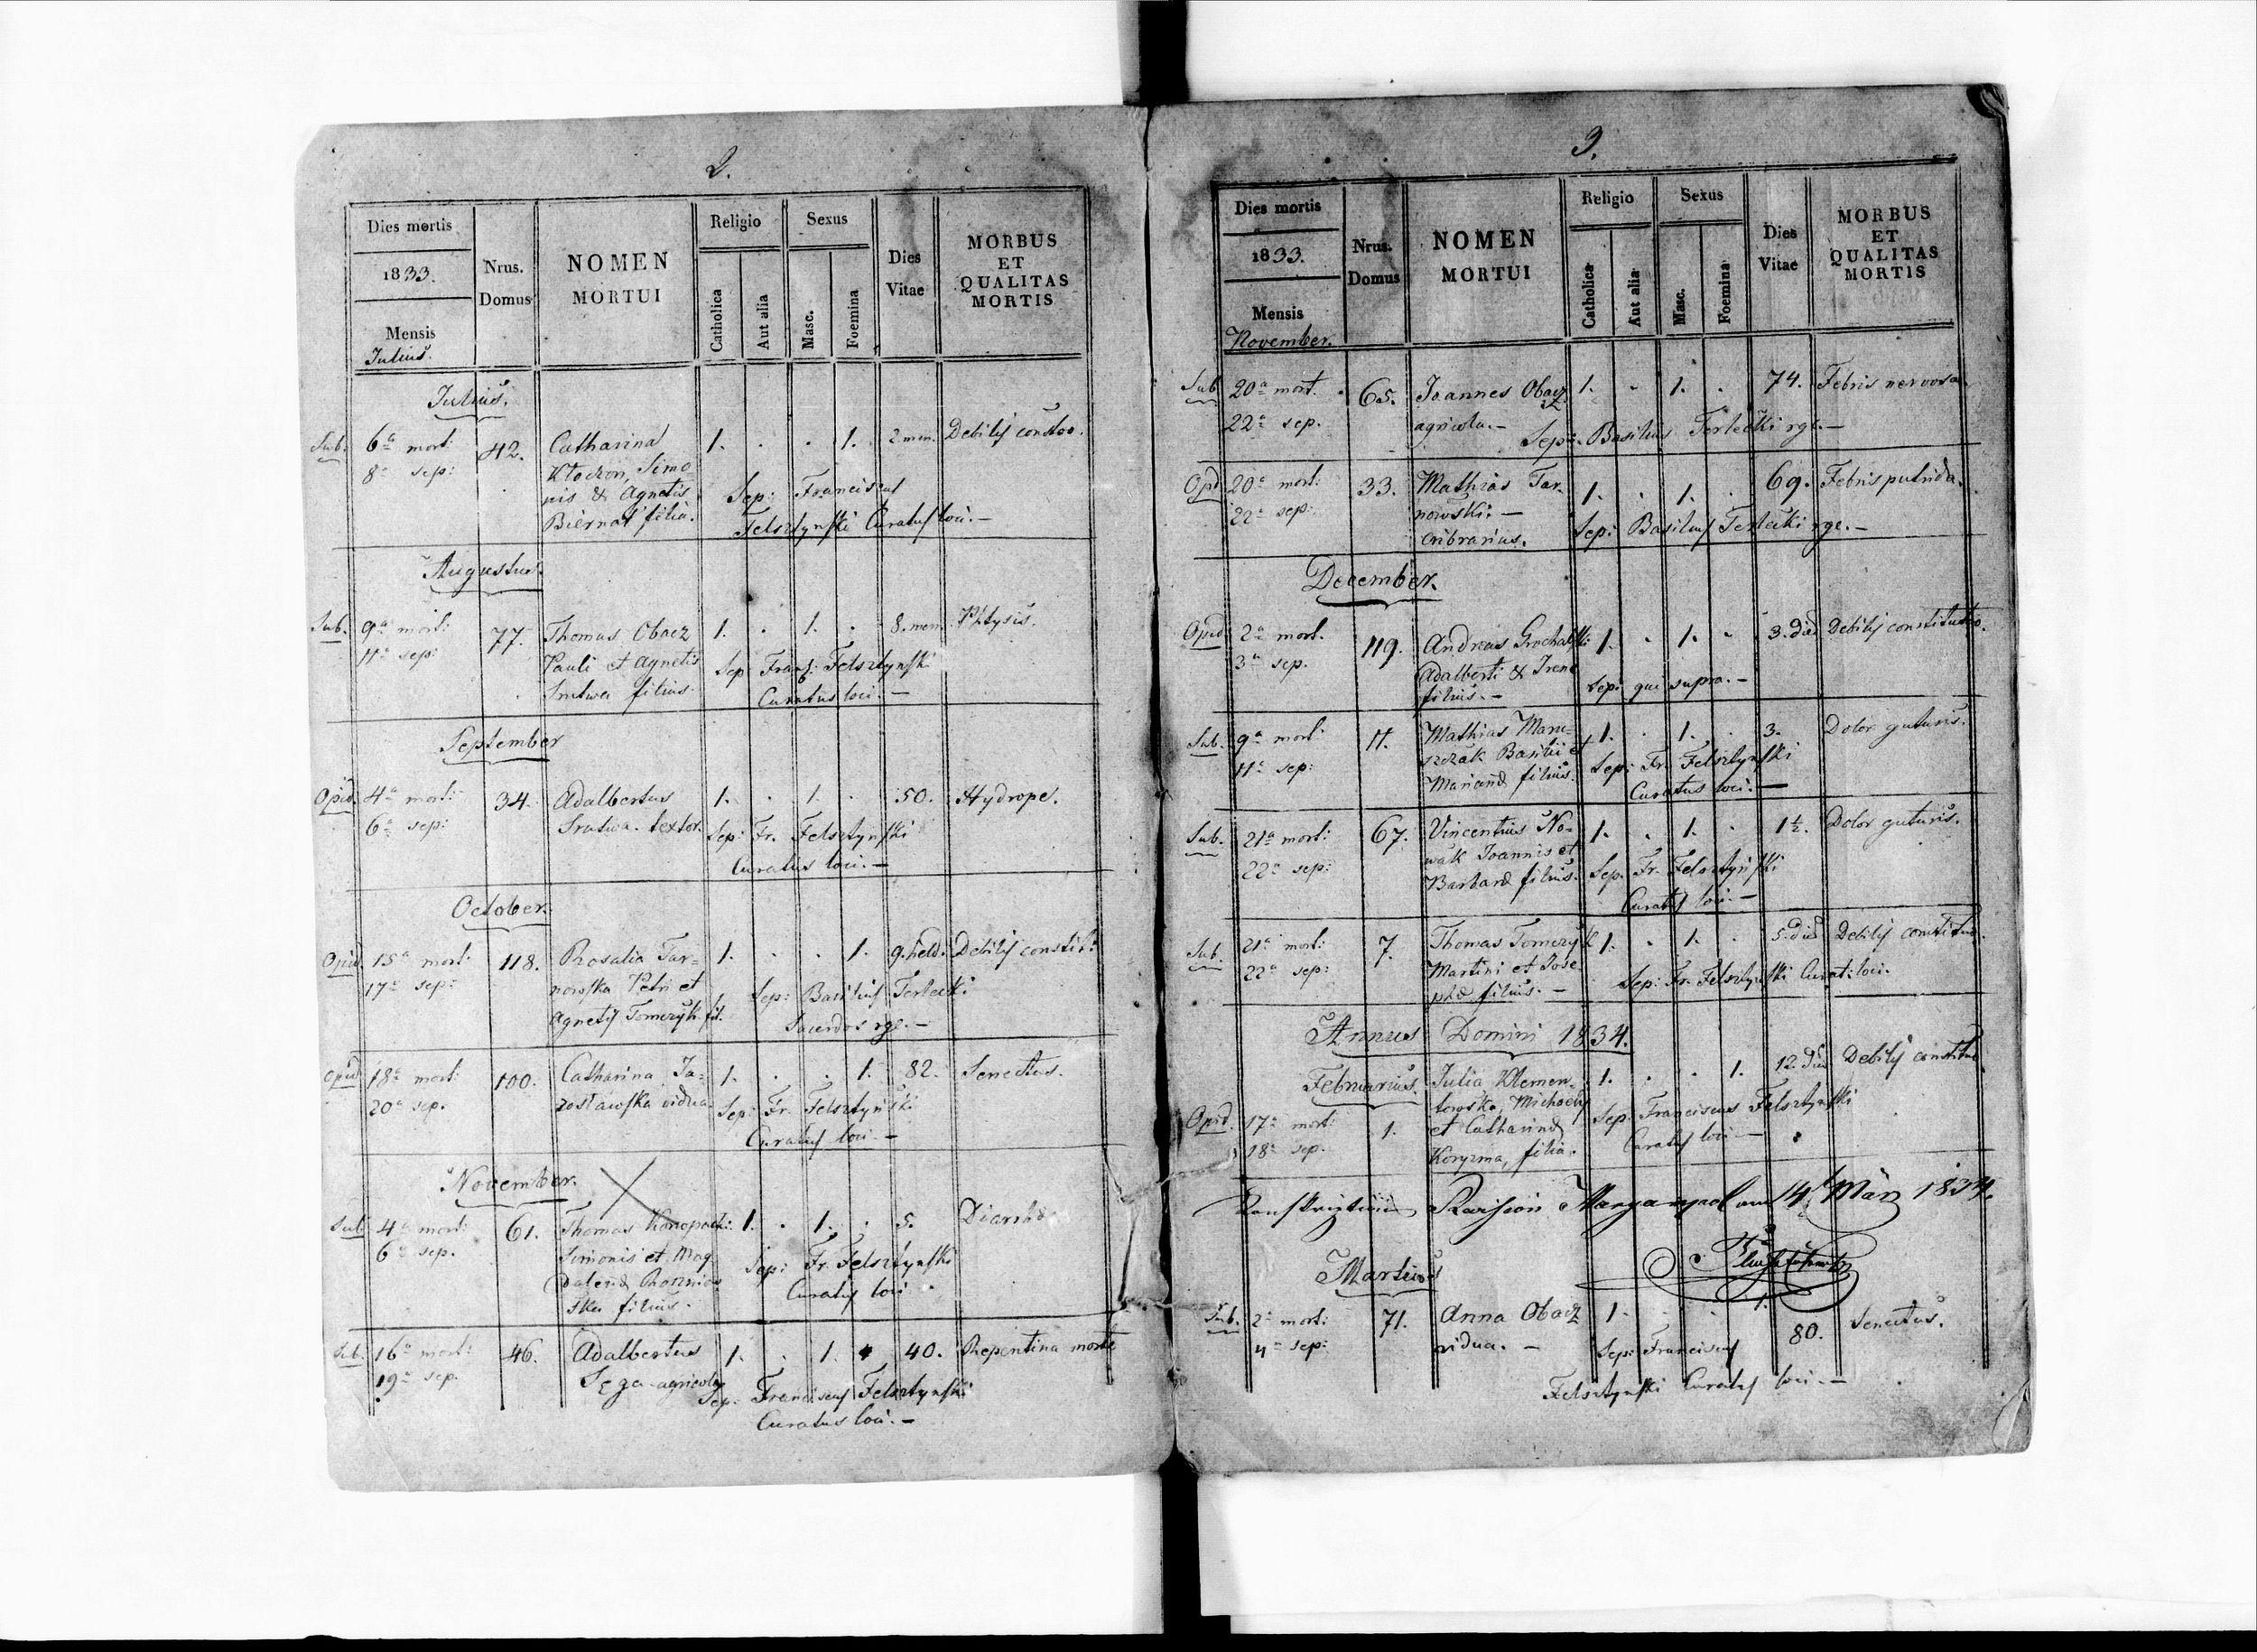 2.
Dies mortis
1833.
Mensis
Julius.
Nrus.
Domus
NOMEN
MORTUI
Religio
Catholica
Aut alia
Sexus
Masc.
Foemina
Dies
Vitae
MORBUS
ET
QUALITAS
MORTIS
Julius.
Sub. 6a mort: 42. Catharina 1. . . 1. 2 men. Debilis constoo.
8a sep: Kłoczon, Simo-
nis & Agnetis Sep: Franciscus
Biernat filia. Felsztynski Curatus loci.—
Augustus.
Sub. 9a mort: 77. Thomas Obacz 1. . 1. . 8. men. Phtysis.
11a sep: Pauli et Agnetis Sep Franz: Felsztynski
Srutwa filius. Curatus loci.—
September
Opid. 4a mort: 34. Adalbertus 1. . 1. . 50. Hydrope.
6a sep: Srutwa textor. Sep: Fr. Felsztynski
Curatus loci.—
October.
Opid. 15a mort: 118. Rosalia Tar- 1. . . 1. 9. hebd: Debilis constit:
17a sep: nowska Petri et Sep: Basilius Terlecki
Agnetis Tomczyk fil. Sacerdos rgc.—
Opid 18a mort: 100. Catharina Ja- 1. . . 1. 82. Senectus.
20a sep. zosławska vidua Sep: Fr. Felsztyński
Curatus loci.—
November.
Sub 4a mort: 61. Thomas 1. . 1. . 5.
6a sep. Simonis et Mag Sep: Fr. Felsztynski
dalenæ Curatus loci
ska filius.
Sub. 16a mort: 46. Adalbertus 1. . 1. 40. Repentina morte
19a sep. Sęga agricola Sep: Franciscus Felsztynski
Curatus loci.—
3.
Dies mortis
1833.
Mensis
November.
Nrus.
Domus
NOMEN
MORTUI
Religio
Catholica
Aut alia
Sexus
Masc.
Foemina
Dies
Vitae
MORBUS
ET
QUALITAS
MORTIS
Sub 20a mort. 65. Joannes Obacz 1. . 1. . 74. Febris nervosa.
22a sep. agricola.— Sep: Basilius Terlecki rgc.—
Opid 20a mort: 33. Mathias Tar- 1. . 1. . 69. Febris putrida.
22a sep: nowski.—
cribrarius. Sep: Basilius Terlecki rgc.—
December.
Opid 2a mort. 119. Andreas Grochalski 1. . 1. . 3. die Debilis constitutio.
3a sep. Adalberti & Irenæ
filius.— Sepi qui supra.—
Sub. 9a mort: 11. Mathias Maru- 1. . 1. . 3. Dolor guturis.
11a sep: szczak Basilii et Sep: Fr. Felsztynski
Mariannæ filius. Curatus loci.—
Sub. 21a mort: 67. Vincentius No- 1. . 1. . 1½. Dolor guturis.
22a sep: wak Joannis et Sep. Fr. Felsztyński
Barbaræ filius. Curatus loci.—
Sub. 21a mort: 7. Thomas Tomczyk 1. . 1. . 5. die Debilis constitutio.
22a sep: Martini et Jose Sep: Fr. Felsztynski Curat: loci.
phæ filius.—
Annus Domini 1834.
Februarius. Julia Klemen- 1. . . 1. 12. die Debilis constitut
towska, Michaelis Sep. Franciscus Felsztynski
Opid. 17a mort: 1. et Catharinæ Curatus loci—
18a sep. Koryzma, filia.
14 März 1834.
Martius
Sub. 2a mort: 71. Anna Obacz 1. . . 1. 80. Senectus.
4a sep: vidua.— Sep: Franciscus
Felsztynski Curatus loci.—